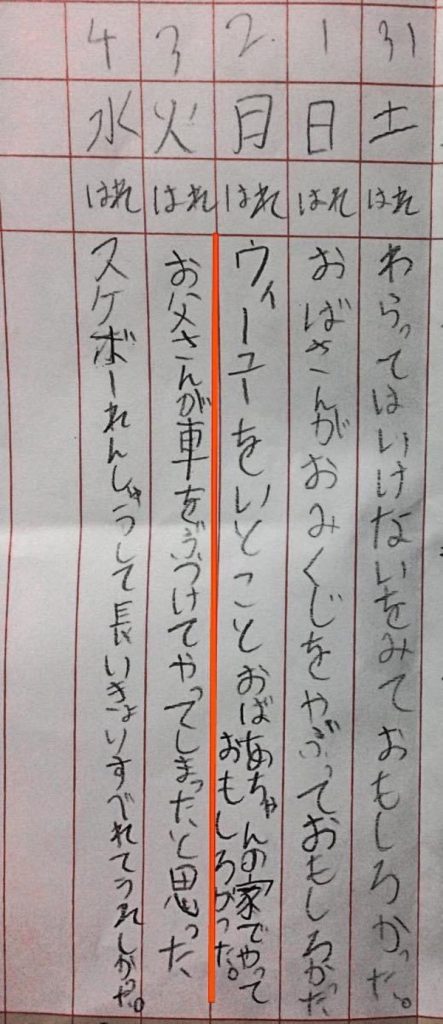 31 土 はれ わらってはいけないをみておもしろかった。
1 日 はれ おばさんがおみくじをやぶっておもしろかった
2. 月 はれ ウィーユーをいとことおばあちゃんの家でやって
おもしろかった。
3 火 はれ お父さんが車をぶつけてやってしまったと思った、
4 水 はれ スケボーれんしゅうして長いきょりすべれてうれしかった。